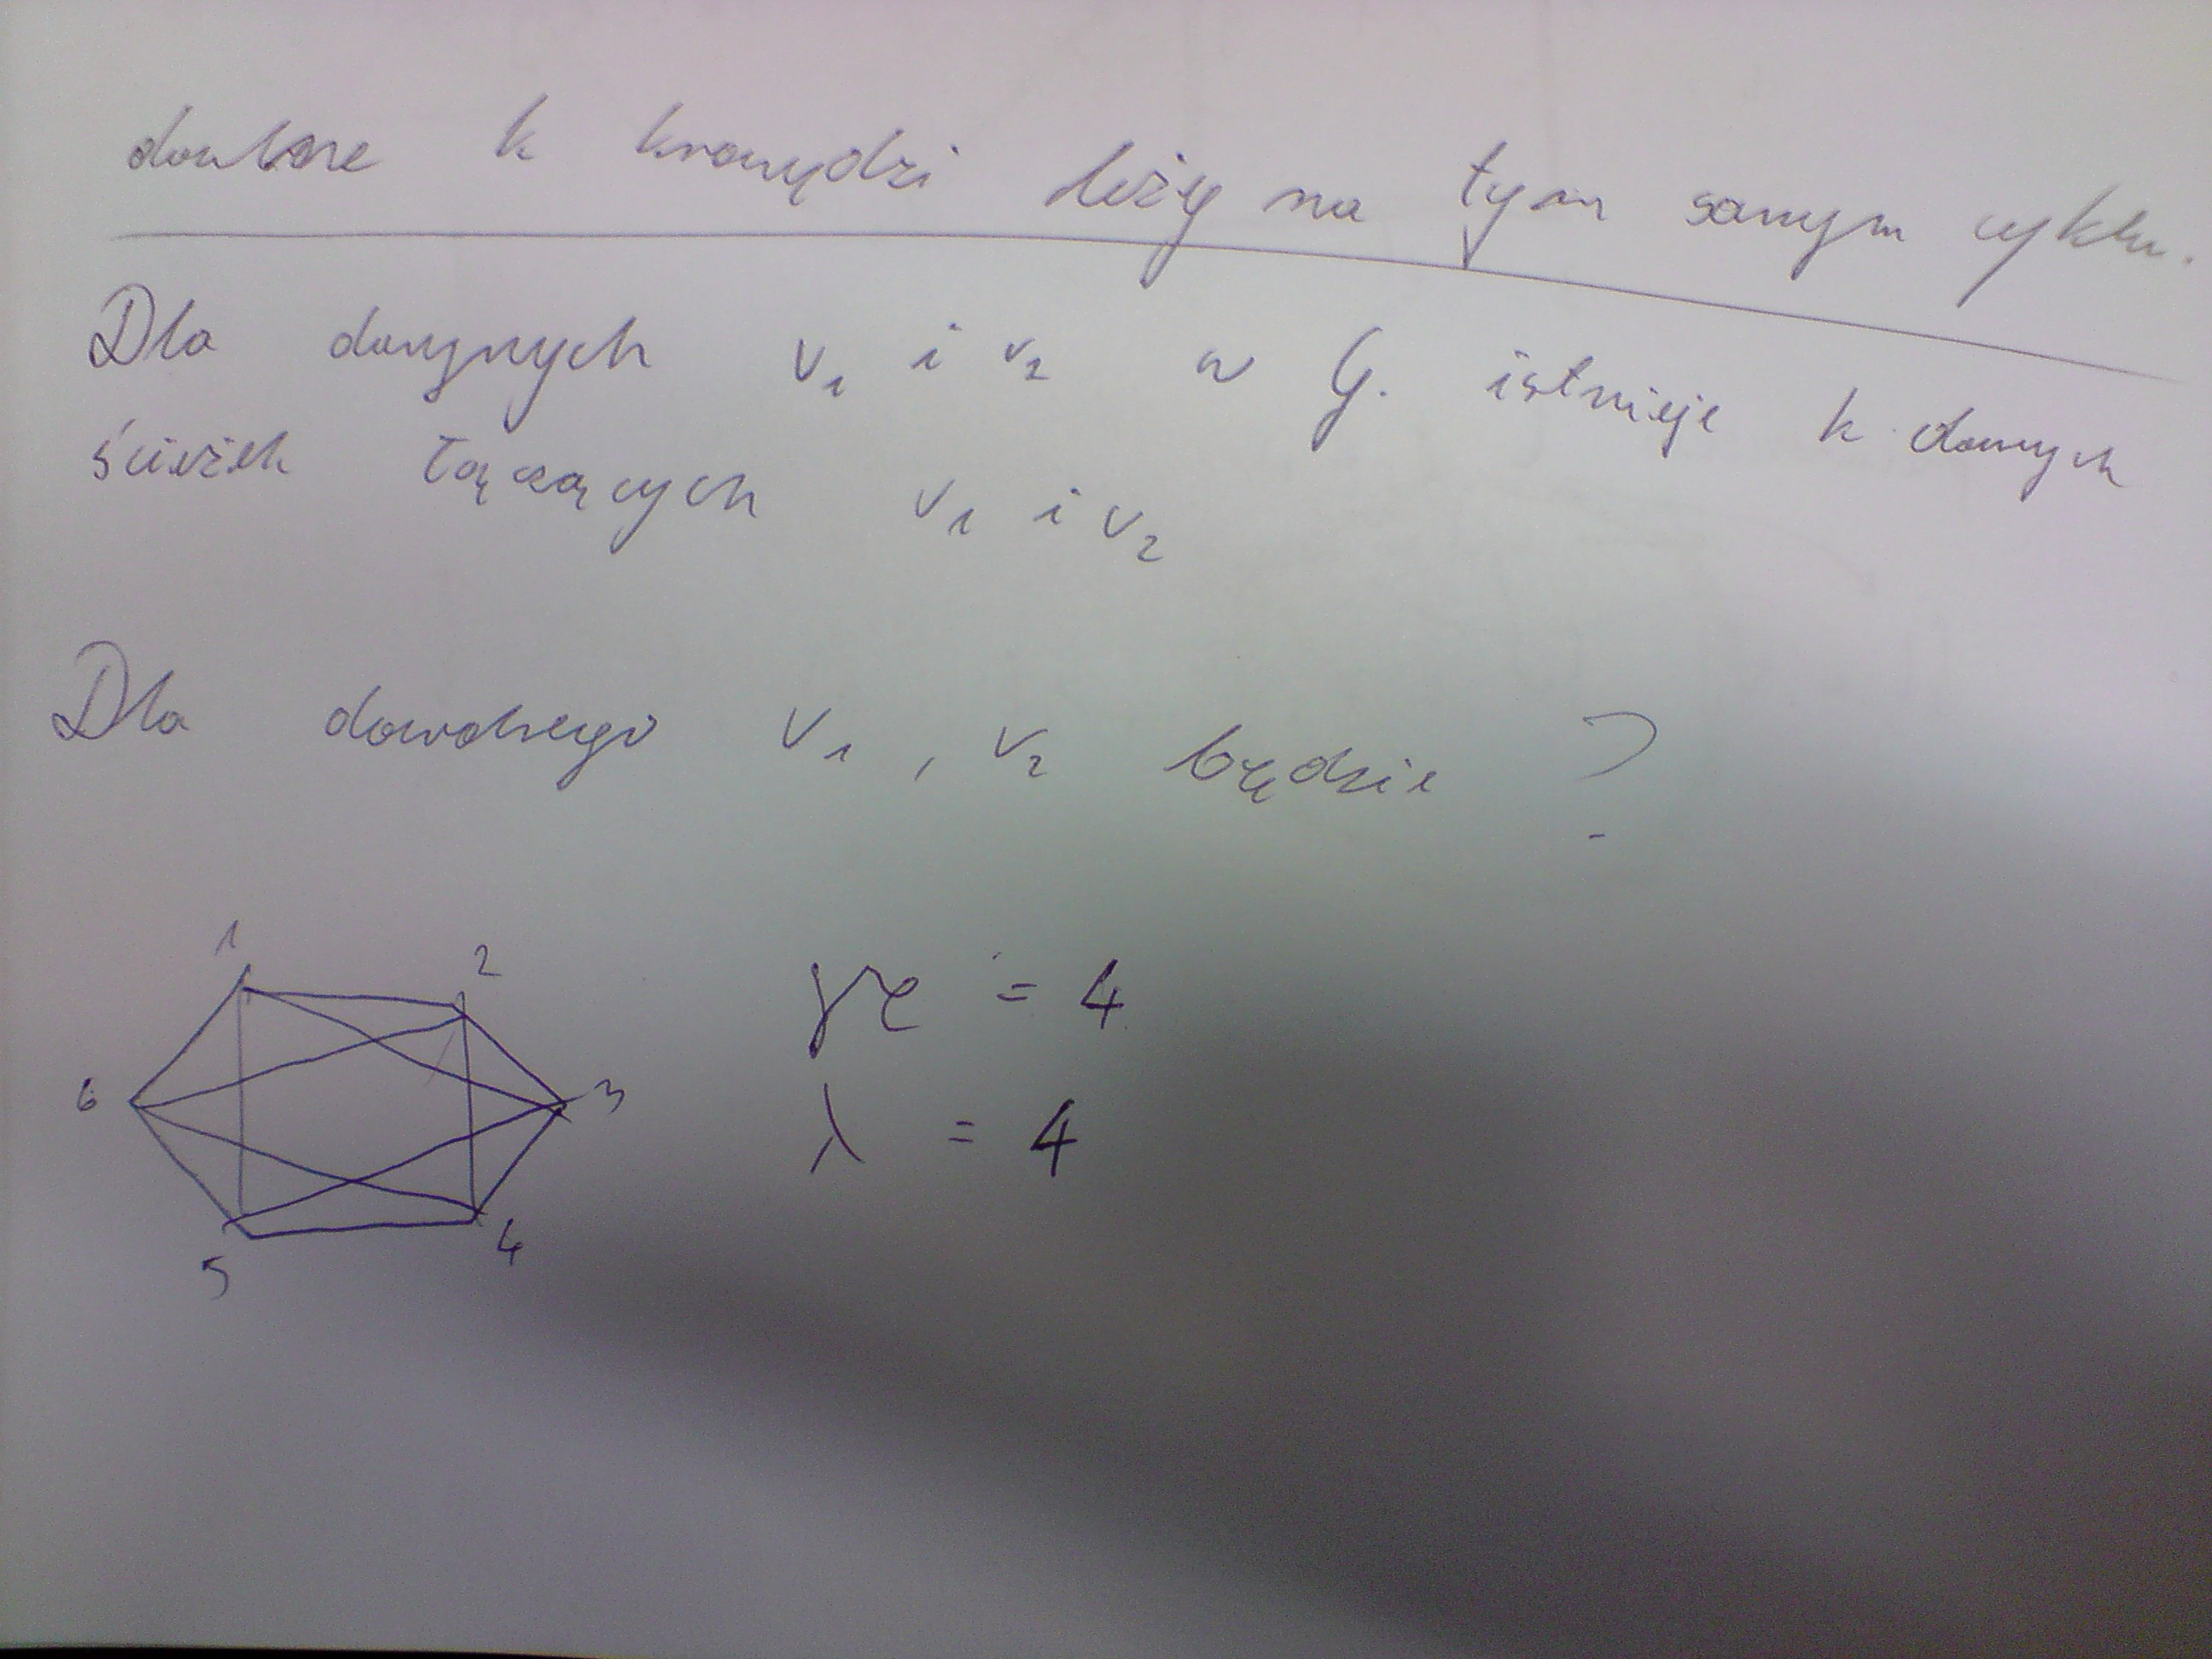 dowolne k krawędzi leży na tym samym cyklu.
Dla danych v₁ i v₂ w G. istnieje k danych
ścieżek łączących v₁ i v₂
Dla dowolnego v₁, v₂ będzie ?
1 2
ϰ = 4
6 3
λ = 4
5 4